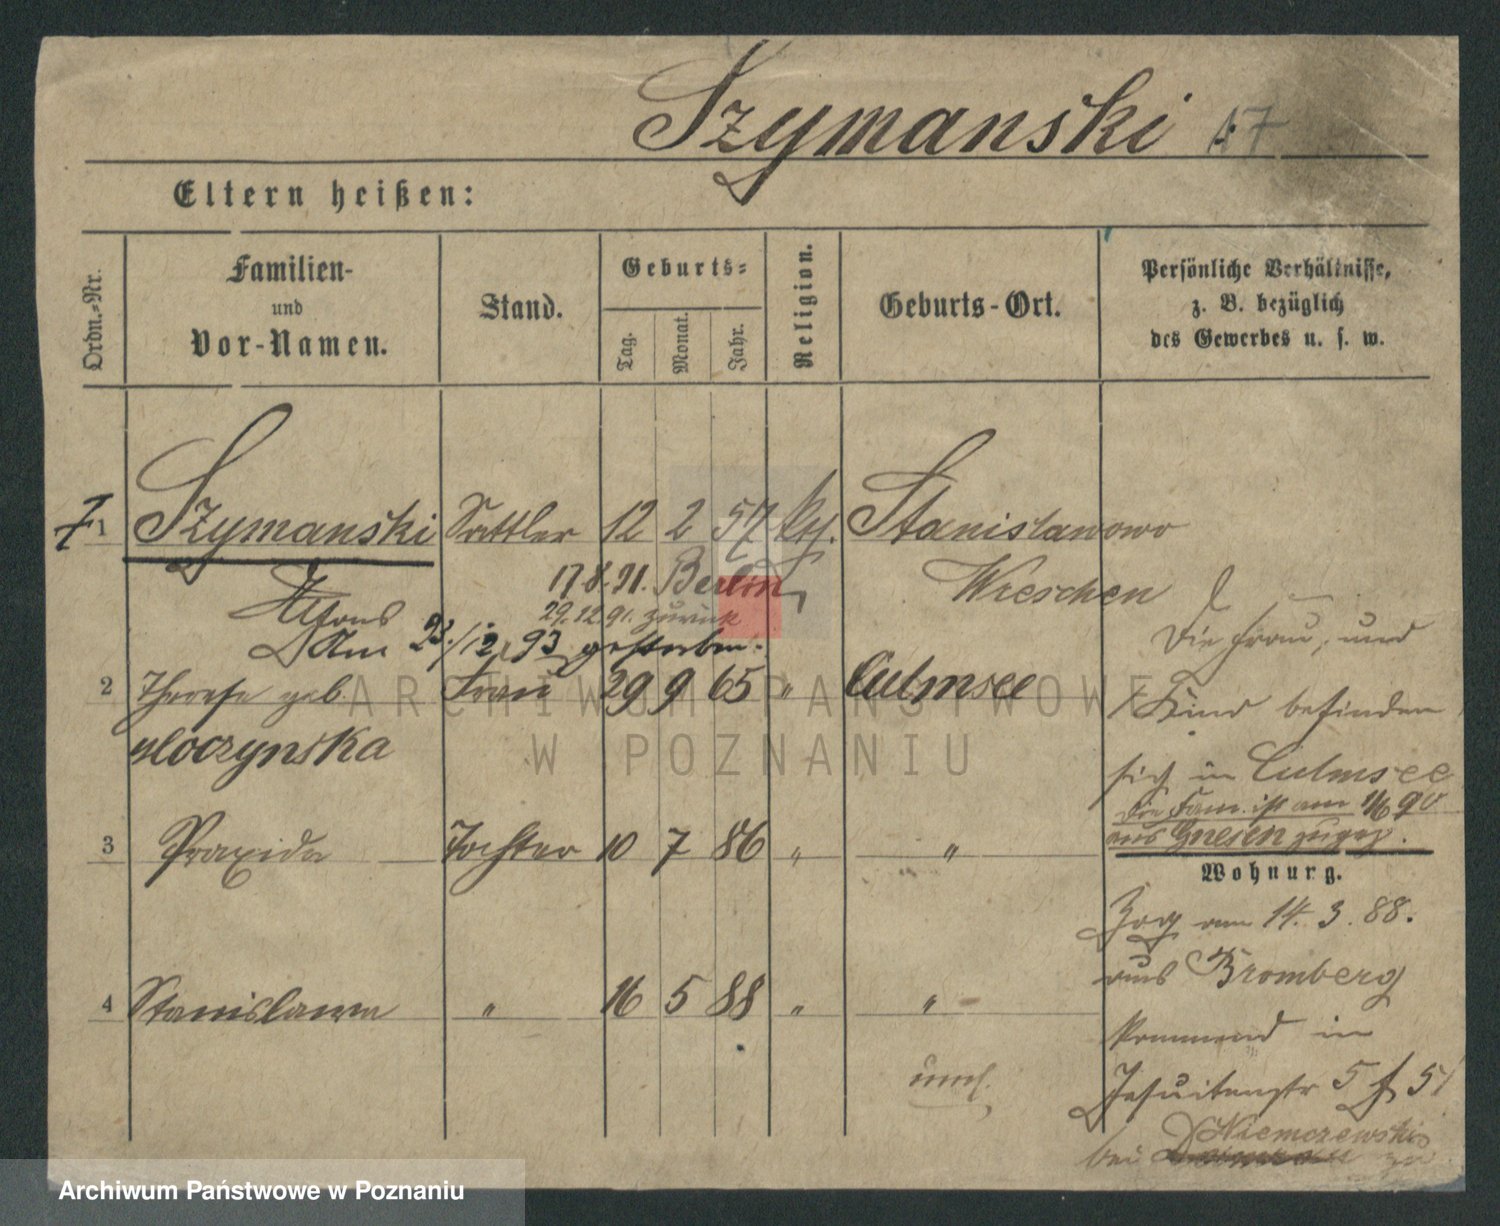 Szymanski 57
Eltern heißen:
Ordn.-Nr.
Familien-
und
Vor-Namen.
Stand.
Geburts-
Tag.
Monat.
Jahr.
Religion.
Geburts-Ort.
Persönliche Verhältnisse,
z. B. bezüglich
des Gewerbes u. s. w.
1 Szymanski Sattler 12 2 57 kth. Stanislawowo
Wreschen
Alfons
17.8.91. Berlin
29.12.91. zurück
Am 23./12. 93 gestorben.
2 Therese geb. Frau 29 9 65 " Culmsee
Moczynska
3 Praxida Tochter 10 7 86 " "
4 Stanislawa " 16 5 88 " "
umf.
Die Frau, und
1 Kind befinden
sich in Culmsee
Die Fam. ist am 1/6 90
aus Gnesen zugez.
Wohnung.
Zog am 14. 3. 88.
aus Bromberg
kommend in
Jesuitenstr 5
bei Niemczewski
zu
ARCHIWUM PAŃSTWOWE
W POZNANIU
Archiwum Państwowe w Poznaniu